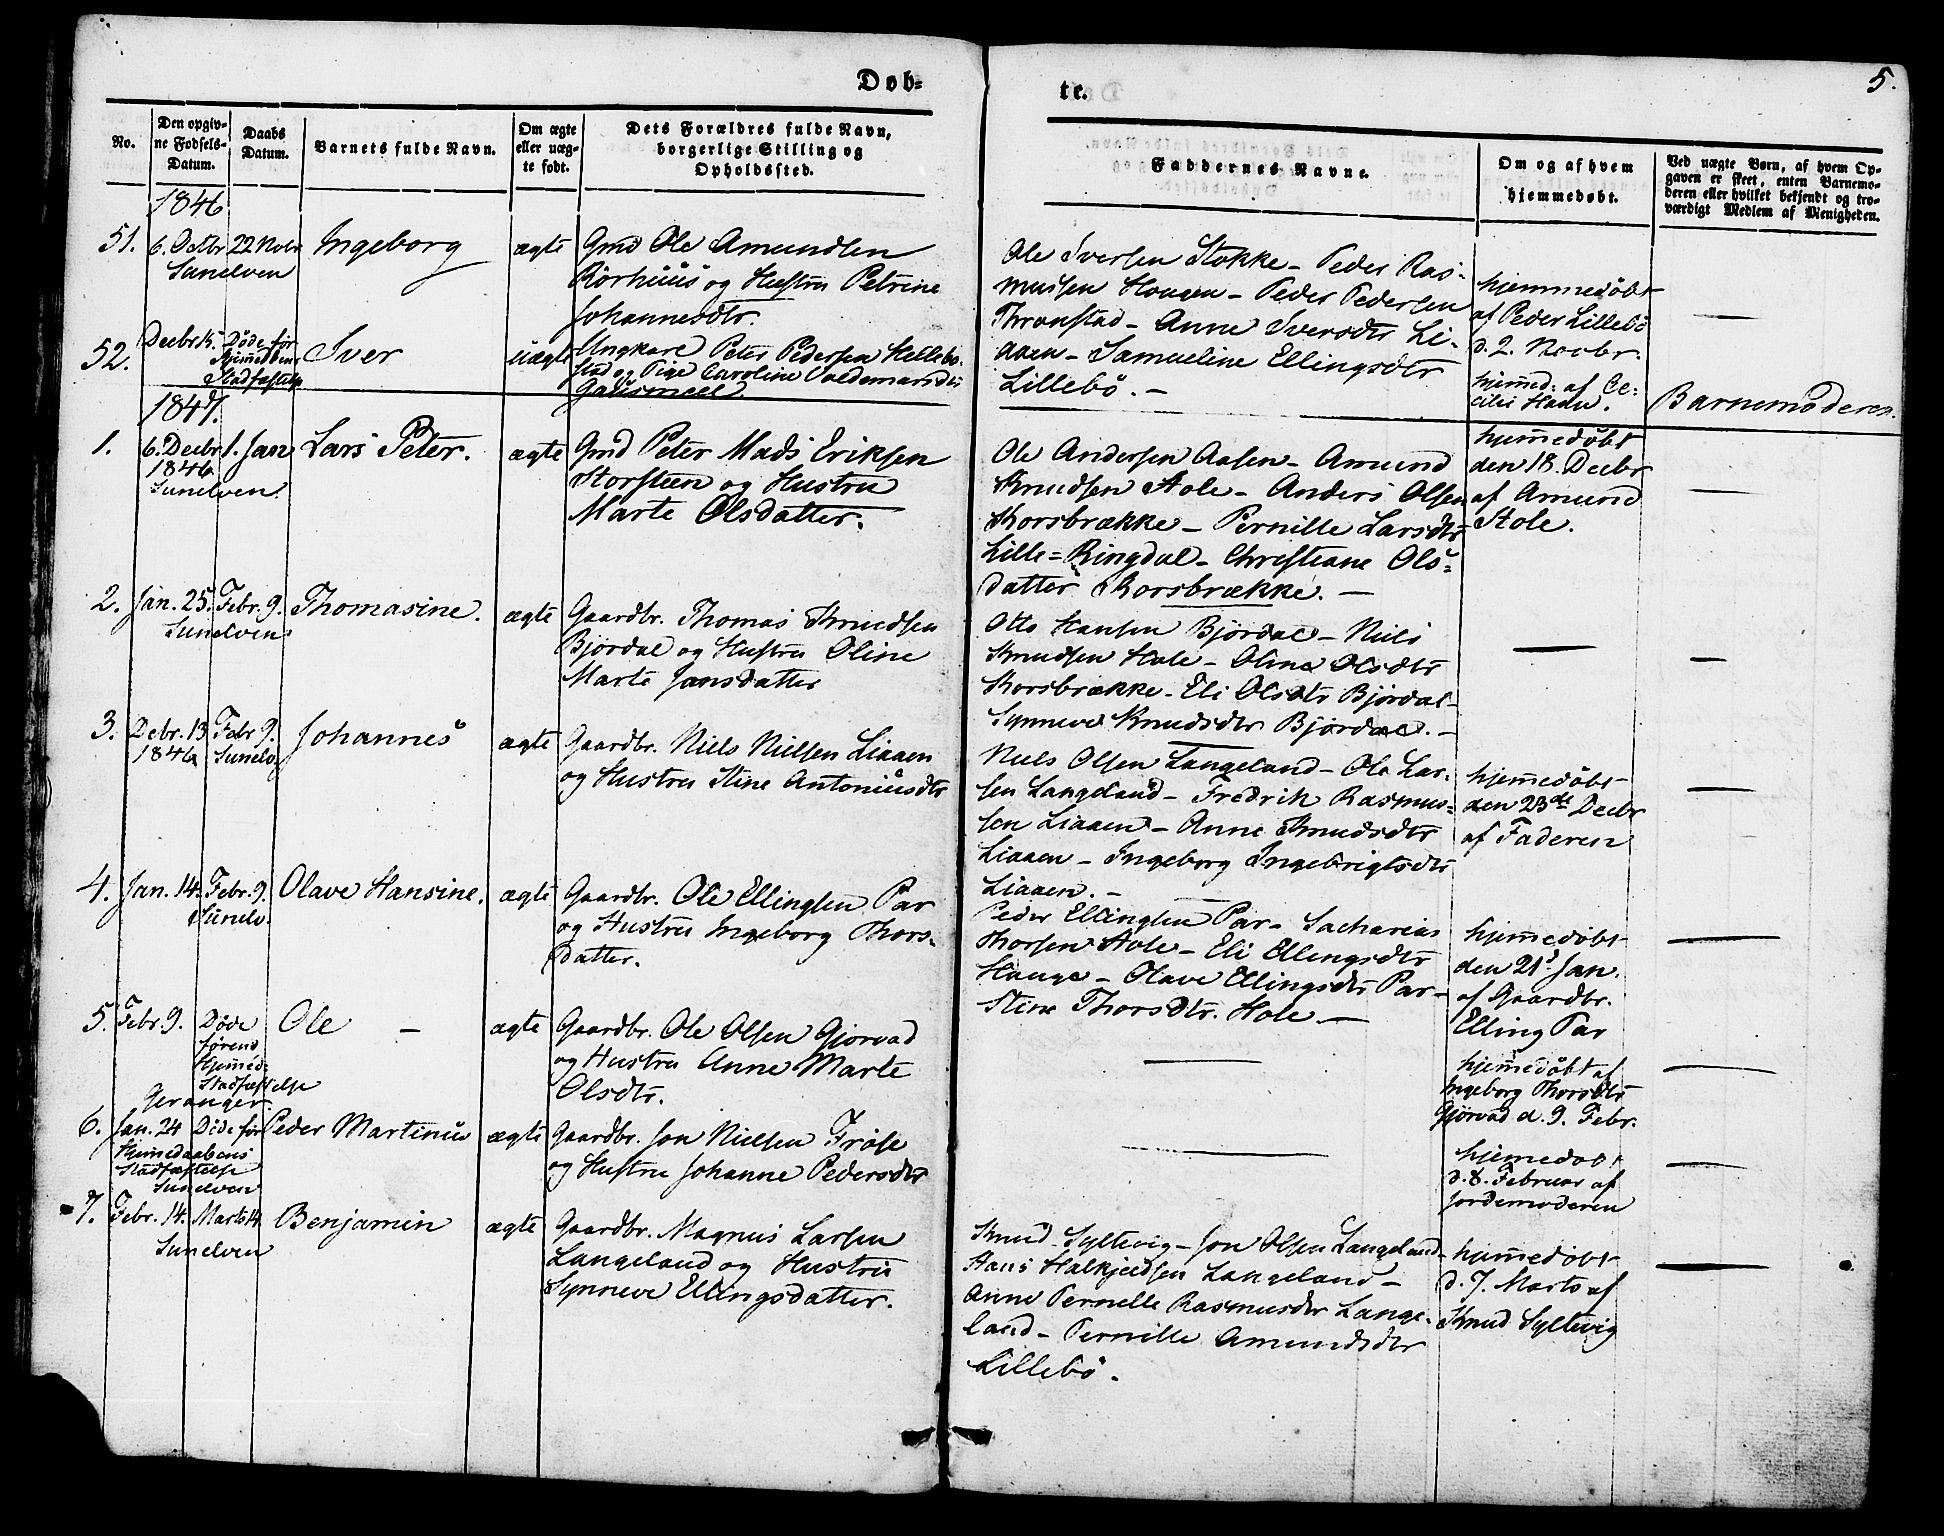 Døb=
te.
5.
No.
Den opgiv-
ne Fødsels-
Datum.
Daabs
Datum.
Barnets fulde Navn.
Om ægte
eller uæg-
te født.
Dets Forældres fulde Navn,
borgerlige Stilling og
Opholdssted.
Faddernes Navne.
Om og af hvem
hjemmedøbt.
Ved uægte Børn, af hvem Op-
gaven er skeet, enten Barnemo-
deren eller hvilket bekjendt og tro-
værdigt Medlem af Menigheden.
1846
51.
6. Octbr
22 Novbr
Sunelven
Ingeborg
ægte
Gmd Ole Amundsen
Rørhuus og Hustru Petrine
Johannesdtr.
Ole Iversen Stokke - Peder Ras-
mussen Hougen - Peder Pedersen
Thronstad - Anne Iversdtr Li-
aaen - Samueline Ellingsdtr
Lillebö. -
hjemmedøbt
af Peder Lillebö
d. 2. Novbr.
52.
Decbr 15.
Døde før
Hjemmed:ens
Stadfæstelse
Iver
uægte
Ungkarl Peter Pedersen Hellebo-
stad og Pige Caroline Valdemarsdtr
hjemmed: af Ce-
cilie Haan.
Barnemoderen.
1847.
1.
6. Decbr
1846
Sunelven.
1. Jan
Lars Peter.
ægte
Gmd Peter Mads Eriksen
Storsteen og Hustru
Marte Olsdatter.
Ole Andersen Aasen - Amund
Knudsen Hole - Anders Olsen
Korsbrække - Pernille Larsdtr
Lille=Ringdal - Christiane Ols-
datter Korsbrække. -
hjemmedøbt
den 18. Decbr
af Amund
Hole.
2.
Jan. 25.
Febr. 9.
Sunelven
Thomasine.
ægte
Gaardbr. Thomas Knudsen
Bjørdal og Hustru Oline
Marte Jansdatter
Otto Hansen Bjørdal - Niels
Knudsen Hole - Oline Olsdtr
Korsbrække - Eli Olsdtr Bjørdal -
Synneve Knudsdtr Bjørdal. -
3.
Debr. 13
1846
Febr 9.
Sunelv.
Johannes
ægte
Gaardbr. Niels Nielsen Liaaen
og Hustru Stine Antoniusdtr
Niels Olsen Langeland - Ole Lar-
sen Langeland - Fredrik Rasmus-
sen Liaaen - Anne Knudsdtr
Liaaen - Ingeborg Ingebrigtsdtr
Liaaen. -
hjemmedøbt
den 23de Decbr
af Faderen
4.
Jan. 14.
Febr. 9.
Sunelv.
Olave Hansine.
ægte
Gaardbr. Ole Ellingsen Par
og Hustru Ingeborg Thors-
datter.
Peder Ellingsen Par - Sacharias
Thorsen Hole - Eli Ellingsdtr
Hauge - Olave Ellingsdtr Par -
Stine Thorsdtr. Hole -
hjemmedøbt
den 21. Jan.
af Gaardbr.
Elling Par
5.
Febr 9.
Døde
førend
Hjemmed:
Stadfæstelse
Geranger.
Ole -
ægte
Gaardbr. Ole Olsen Gjørvad
og Hustru Anne Marte
Olsdtr.
hjemmedøbt af
Ingeborg Thorsdtr
Gjørvad d. 9. Febr.
6.
Jan. 24
Døde før
Hjemmedaabens
Stadfæstelse
Sunelven
Peder Martinus
ægte
Gaardbr. Jon Nielsen Frøse
og Hustru Johanne Pedersdtr
hjemmedøbt
d. 8. Februar af
Jordemoderen
7.
Febr. 14.
Marts 14.
Sunelven
Benjamin
ægte
Gaardbr. Magnus Larsen
Langeland og Hustru
Synneve Ellingsdatter.
Knud Syltevig - Jon Olsen Langeland -
Hans Halkjeldsen Langeland -
Anne Pernelle Rasmusdtr Lange-
land - Pernille Amundsdtr
Lillebö.
hjemmedøbt
d. 7. Marts af
Knud Syltevig